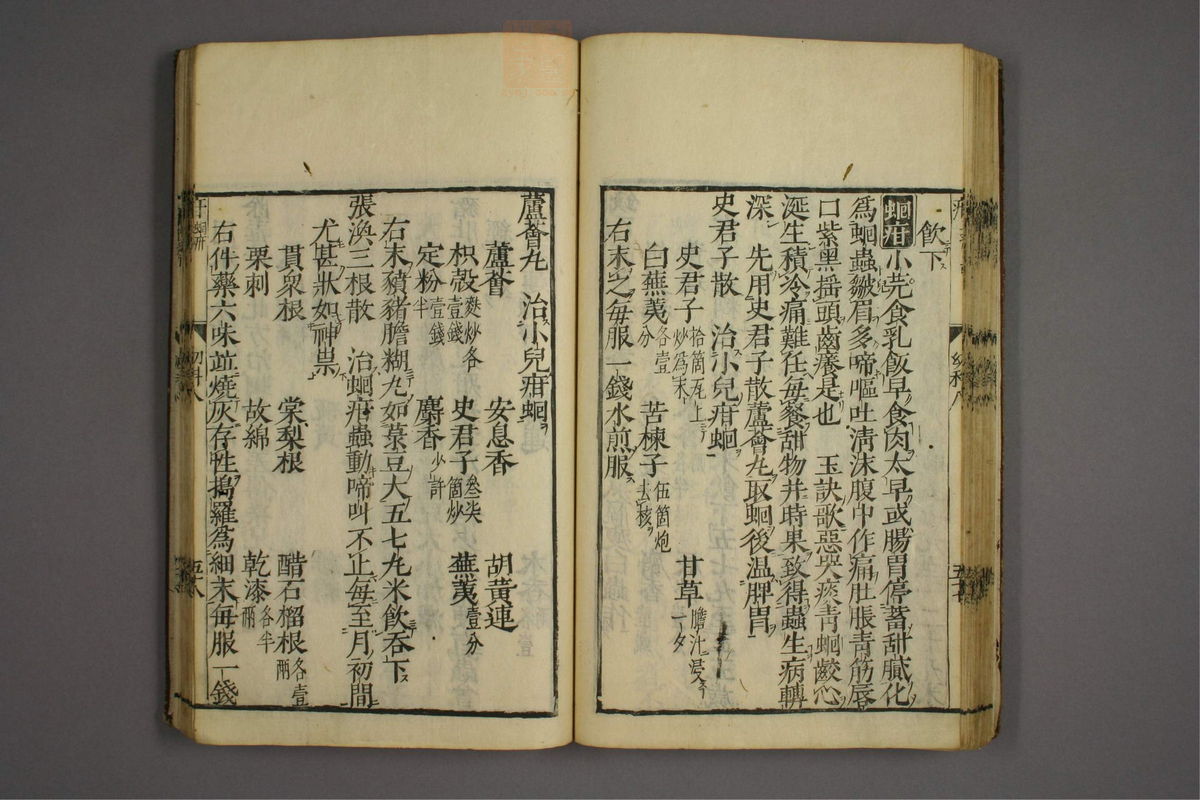 飲下
蚘疳小兒食乳飯早食肉太早或腸胃停蓄甜膩化
為蚘蟲皺眉多啼嘔吐清沫腹中作痛肚脹青筋唇
口紫黑揺頭齒癢是也 玉訣歌惡哭痰青蚘齩心
涎生積冷痛難任毎餐甜物并時果致得蟲生病轉
深 先用史君子散蘆薈丸取蚘後温脾胃
史君子散 治小兒疳蚘
史君子拾箇瓦上炒為末 甘草膽汁浸一夕
白蕪荑各壹分 苦楝子伍箇炮去核
右末之毎服一錢水煎服
蘆薈丸 治小兒疳蚘
蘆薈 安息香 胡黃連
枳殼麩炒各壹錢 史君子叄柒箇炒 蕪荑壹分
定粉壹錢半 麝香少許
右末豶豬膽糊丸如菉豆大五七丸米飲吞下
張渙三根散 治蚘疳蟲動啼叫不止毎至月初間
尤甚狀如神祟
貫衆根 棠梨根 醋石榴根各壹兩
栗刺 故綿 乾漆各半兩
右件藥六味並燒灰存性搗羅為細末毎服一錢